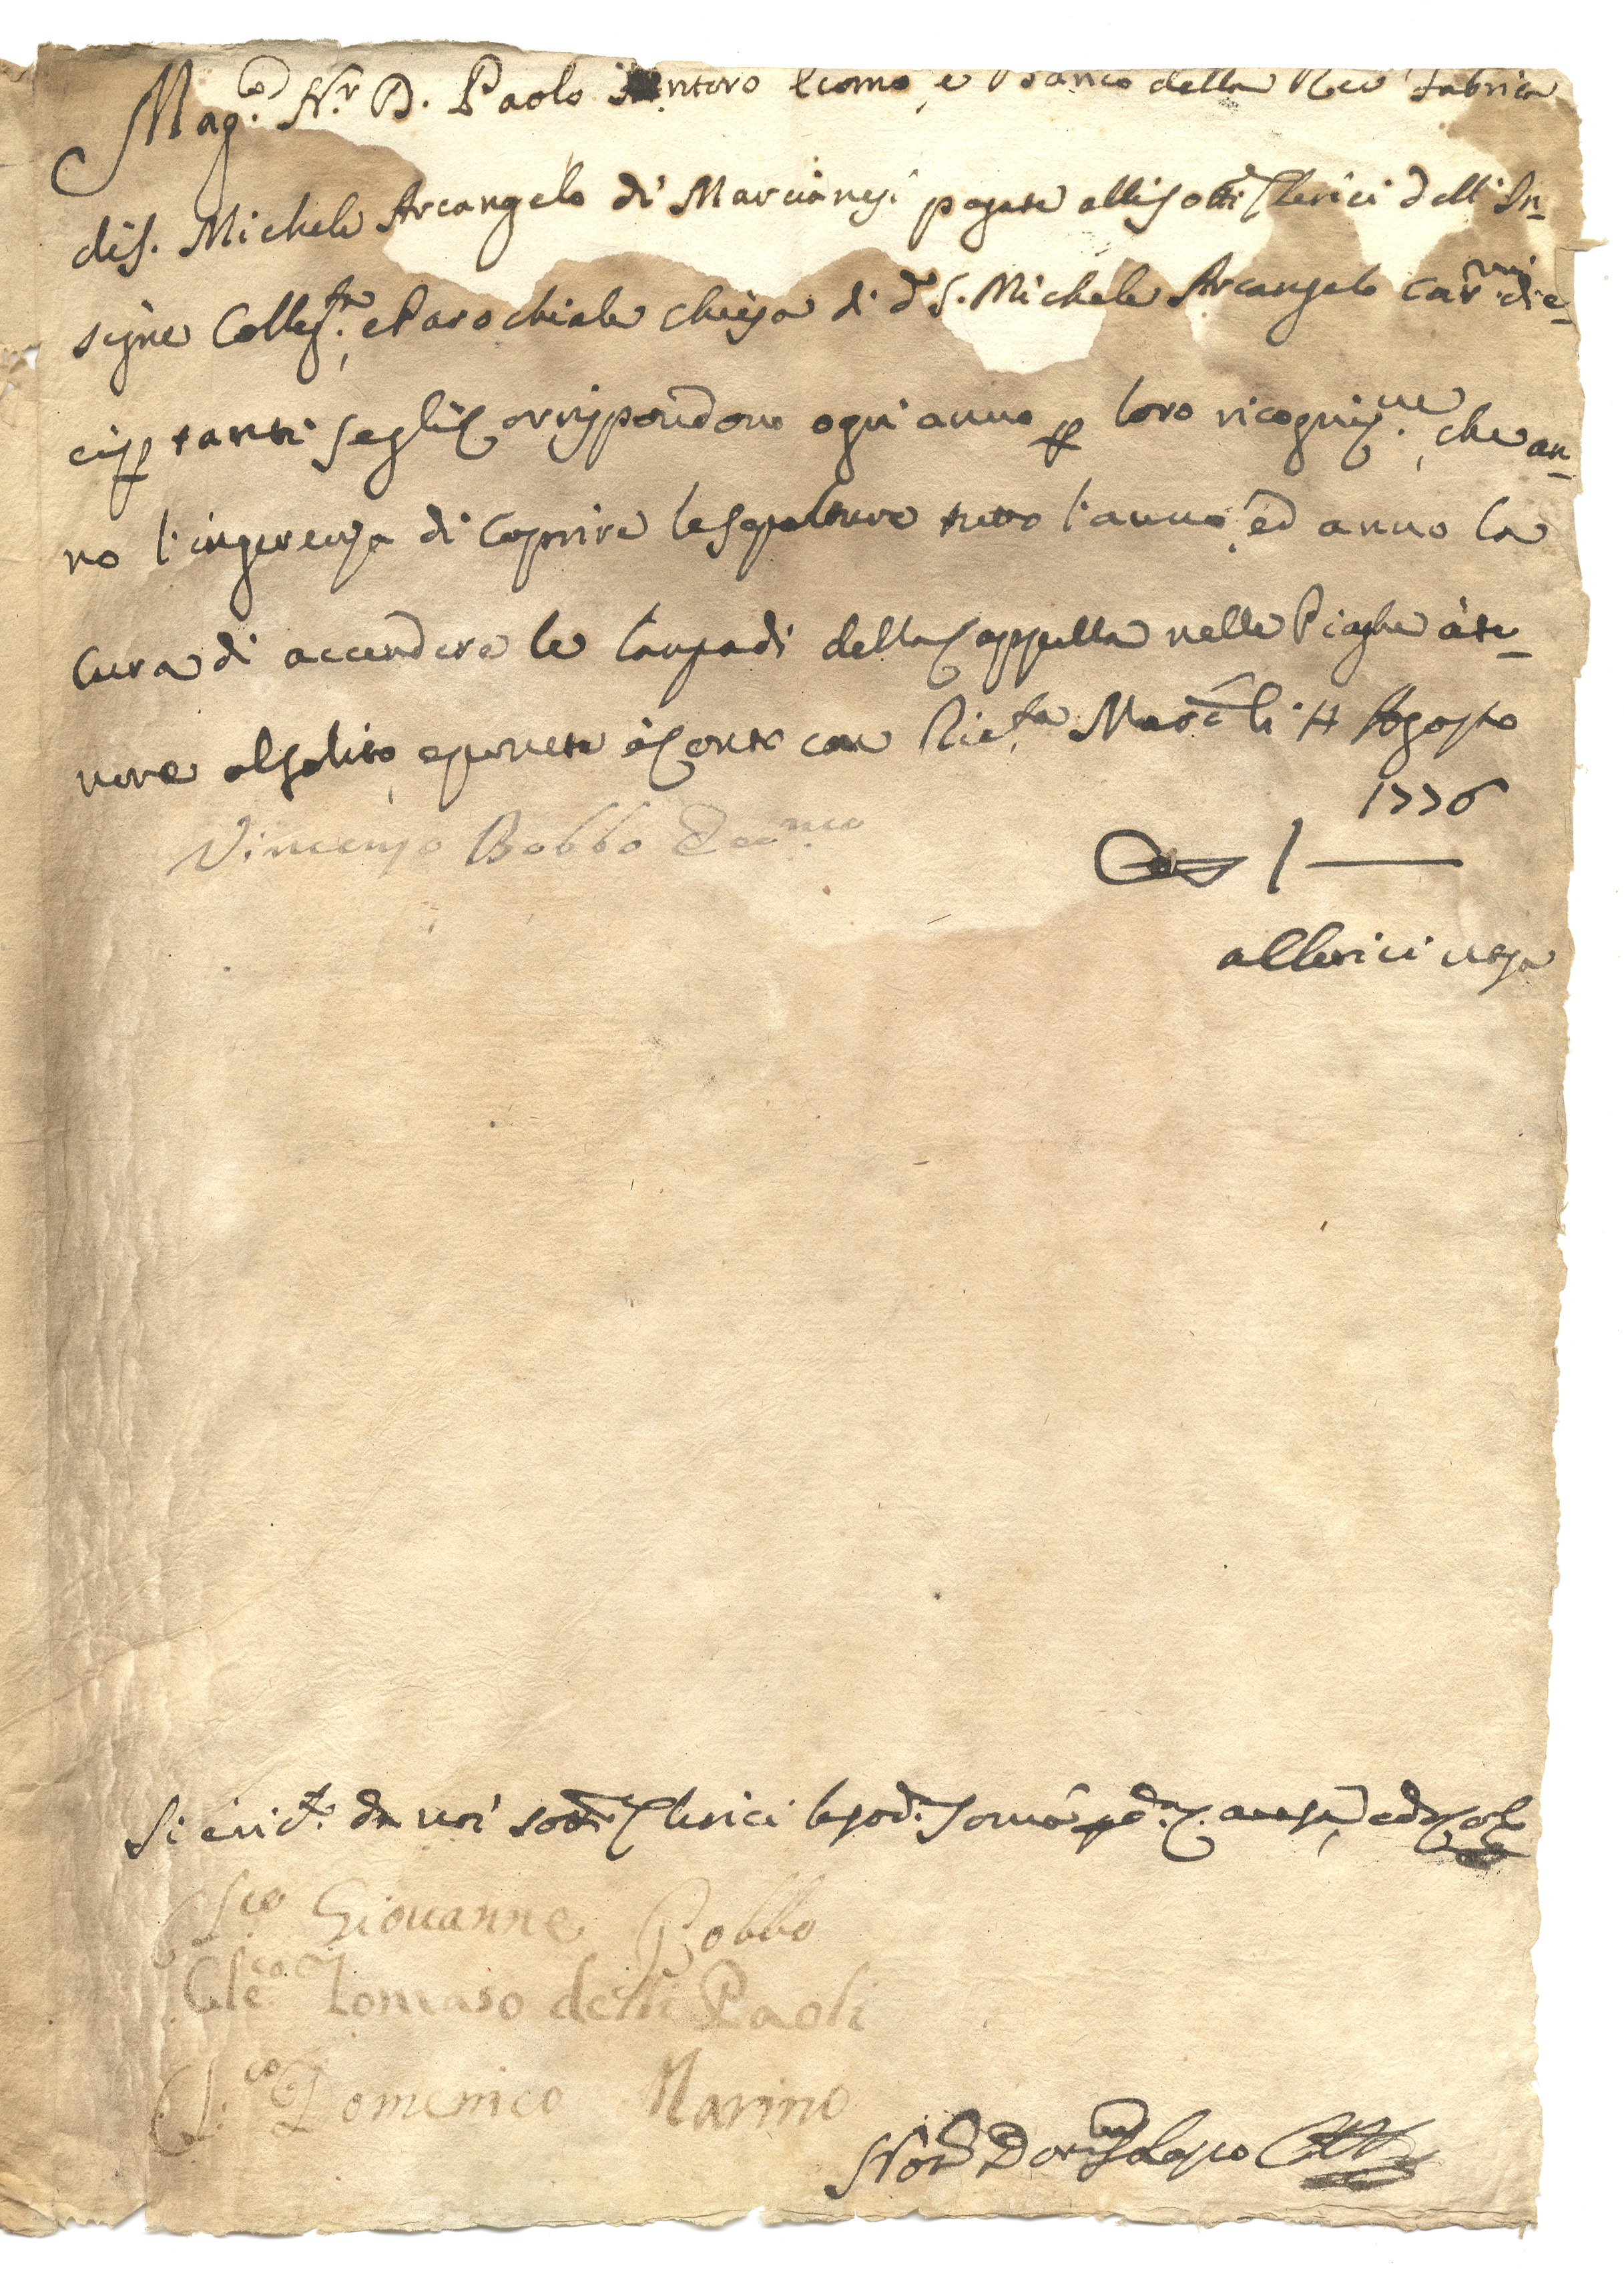 Mag.co Nr. D. Paolo Santoro Ecomo, e Banco della Ree Fabrica
di S. Michele Arcangelo di Marcianesi pagate alli sotti Clerici dell' In-
signe Colleg.ta, e Parochiale chiesa di d.o S. Michele Arcangelo Car.ni die-
ci, p tanti se gli Corrispondono ogni anno p loro ricogniz.ne, che an-
no l'ingerenza di Coprire le Sepolture tutto l'anno, ed anno la
Cura di accendere le lampadi della Cappella nelle Piaghe à te-
nore al solito, e ponete à Conto con Ric.ta Mar.e li 4 Agosto
1776
Vincenzo Bobbo Eco.mo
1 —
Si è ric.to da noi sotti Clerici la sod.a Soma p d.a Causa, ed
Cl.co Giovanne Bobbo
Cle.co Tomaso delli Paoli
Cl.co Domenico Marino